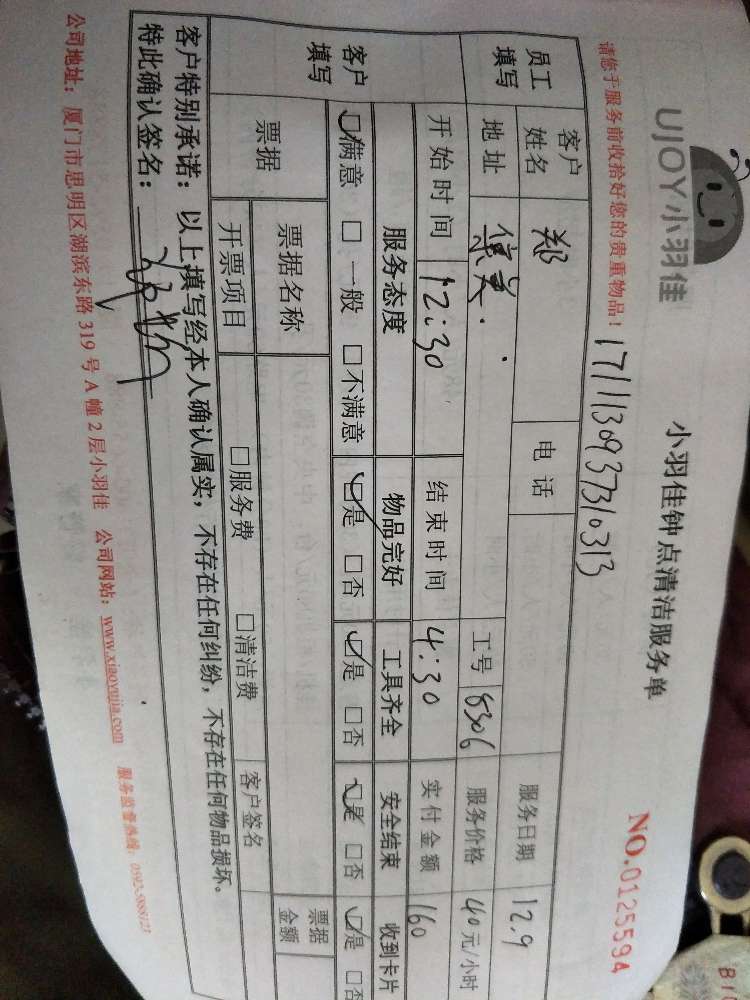 UJOY小羽佳
小羽佳钟点清洁服务单
NO.0125594
请您于服务前收拾好您的贵重物品！
1711130937310313
员工填写 客户姓名 郑 电话 服务日期 12.9
地址 集美. 工号 8306 服务价格 40元/小时
开始时间 12:30 结束时间 4:30 实付金额 160
客户填写 服务态度 物品完好 工具齐全 安全结束 收到卡片
☑满意 □一般 □不满意 ☑是 □否 ☑是 □否 ☑是 □否 ☑是 □否
票据 票据名称 票据金额
开票项目 □服务费 □清洁费 客户签名
客户特别承诺：以上填写经本人确认属实，不存在任何纠纷，不存在任何物品损坏。
特此确认签名：
公司地址：厦门市思明区湖滨东路319号A幢2层小羽佳 公司网站：www.xiaoyujia.com 服务监督热线：0592-5888123